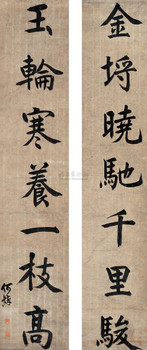 金埒曉馳千里駿
玉輪寒養一枝高
何焯